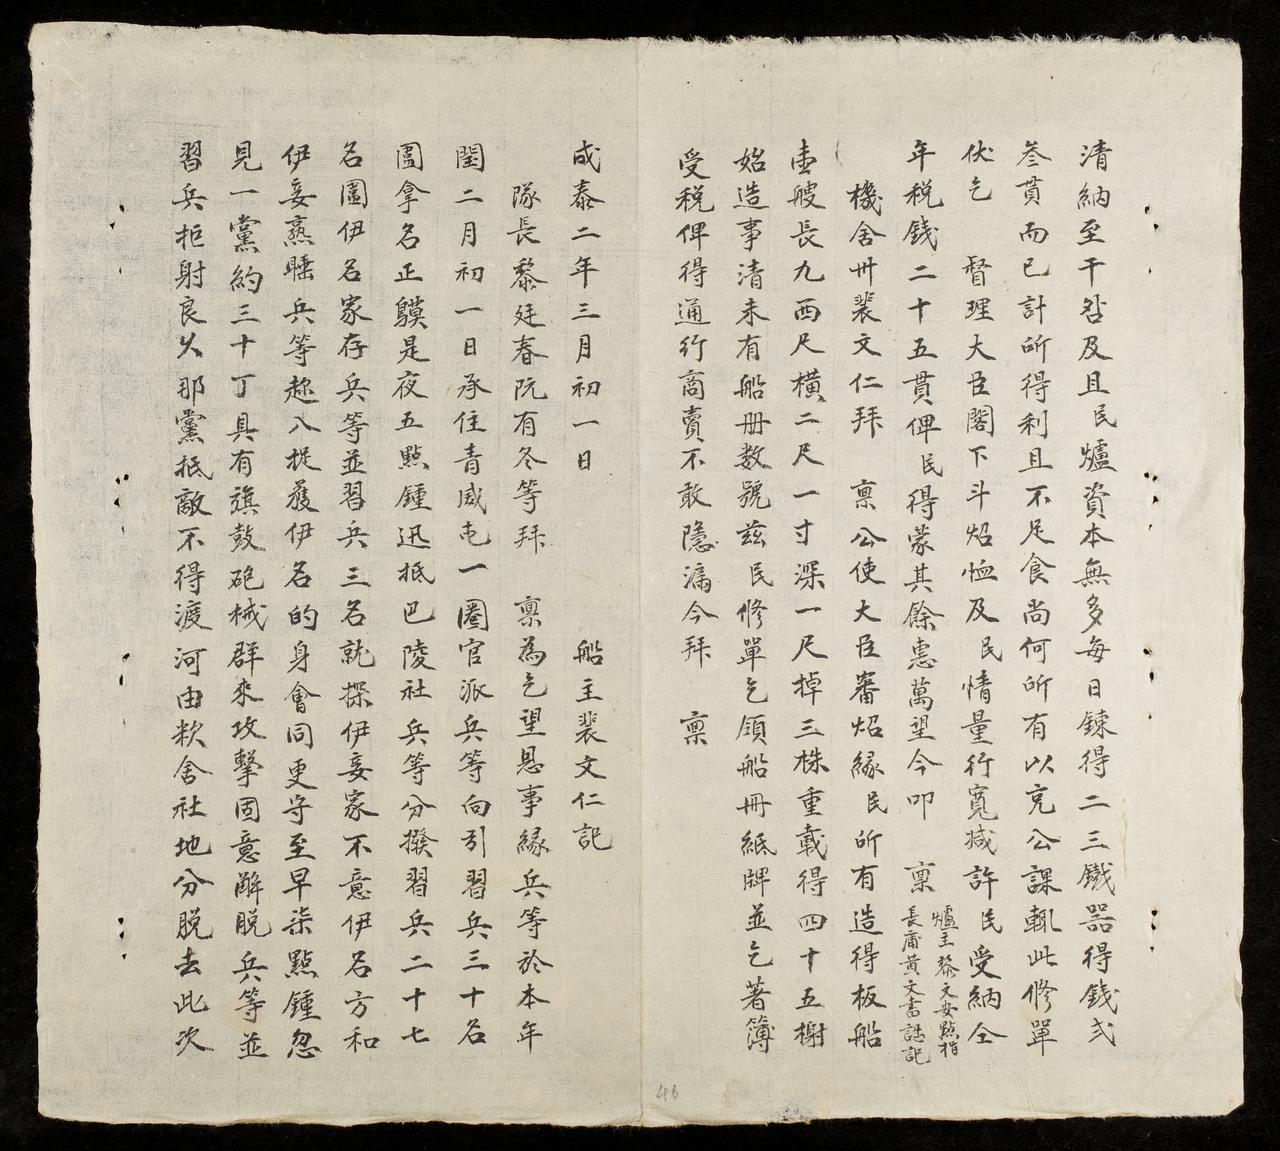 清納至干咎及且民爐資本無多每日鍊得二三鐵器得錢弍
叁貫而已計所得利且不足食尚何所有以充公課輒此修單
伏乞　督理大臣閣下斗炤恤及民情量行寬减許民受納仝
年稅錢二十五貫俾民得蒙其餘惠萬望今叩　稟
爐主黎文安點指
長庯黃文書誌記
機舍卅裴文仁拜　稟公使大臣審炤緣民所有造得板船
壺艘長九西尺橫二尺一寸深一尺掉三株重載得四十五榭
始造事清未有船册数號兹民修單乞領船冊紙牌並乞著簿
受稅俾得通行商賣不敢隱漏今拜　稟
成泰二年三月初一日　船主裴文仁記
隊長黎廷春阮有冬等拜　稟為乞望恩事緣兵等於本年
閏二月初一日承住青威屯一圈官派兵等向引習兵三十名
圖拿名正騻是夜五點鍾迅抵巴陵社兵等分撥習兵二十七
名圍伊名家存兵等並習兵三名就探伊妾家不意伊名方和
伊妾熟睡兵等趂入捉獲伊名的身會同更守至早柒點鍾忽
見一黨約三十丁具有旗鼓砲械群來攻擊固意解脱兵等並
習兵拒射良久那黨抵敵不得渡河由欵舍社地分脱去此次